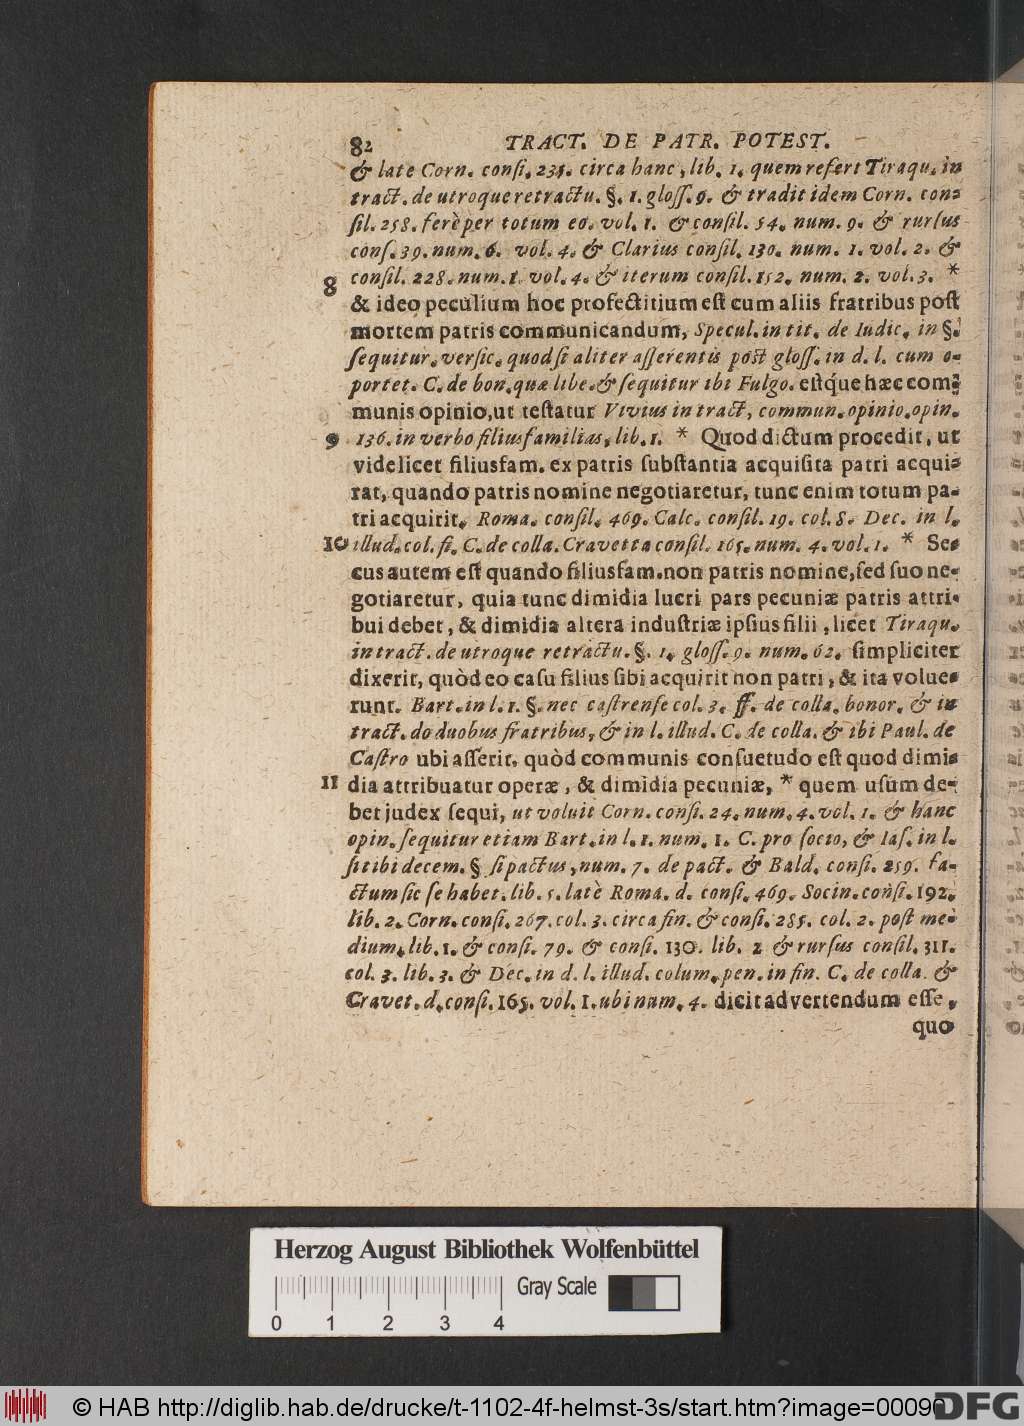 82 TRACT. DE PATR. POTEST.
& late Corn. consi. 235. circa hanc, lib. 1. quem refert Tiraqu. in
tract. de utroque retractu. §. 1. gloss. 9. & tradit idem Corn. con-
sil. 258. ferè per totum eo. vol. 1. & consil. 54. num. 9. & rursus
cons. 39. num. 6. vol. 4. & Clarius consil. 130. num. 1. vol. 2. &
8 consil. 228. num. 1. vol. 4. & iterum consil. 152. num. 2. vol. 3. *
& ideo peculium hoc profectitium est cum aliis fratribus post
mortem patris communicandum, Specul. in tit. de Iudic. in §.
sequitur. versic. quod si aliter asserentis post gloss. in d. l. cum o-
portet. C. de bon. quæ libe. & sequitur ibi Fulgo. estq́ue hæc com-
munis opinio, ut testatur Vivius in tract, commun. opinio. opin.
9 136. in verbo filiusfamilias, lib. 1. * Quod dictum procedit, ut
videlicet filiusfam. ex patris substantia acquisita patri acqui-
rat, quando patris nomine negotiaretur, tunc enim totum pa-
tri acquirit. Roma. consil. 469. Calc. consil. 19. col. 8. Dec. in l.
10 illud. col. fi. C. de colla. Cravetta consil. 165. num. 4. vol. 1. * Se-
cus autem est quando filiusfam. non patris nomine, sed suo ne-
gotiaretur, quia tunc dimidia lucri pars pecuniæ patris attri-
bui debet, & dimidia altera industriæ ipsius filii, licet Tiraqu.
in tract. de utroque retractu. §. 1. gloss. 9. num. 62. simpliciter
dixerit, quòd eo casu filius sibi acquirit non patri, & ita volue-
runt. Bart. in l. 1. §. nec castrense col. 3. ff. de colla. bonor. & in
tract. do duobus fratribus, & in l. illud. C. de colla. & ibi Paul. de
Castro ubi asserit, quòd communis consuetudo est quod dimi-
11 dia attribuatur operæ, & dimidia pecuniæ, * quem usum de-
bet judex sequi, ut voluit Corn. consi. 24. num. 4. vol. 1. & hanc
opin. sequitur etiam Bart. in l. 1. num. 1. C. pro socio, & Ias. in l.
si tibi decem. § si pactus, num. 7. de pact. & Bald. consi. 259. fa-
ctum sic se habet. lib. 5. latè Roma. d. consi. 469. Socin. consi. 192.
lib. 2. Corn. consi. 267. col. 3. circa fin. & consi. 285. col. 2. post me-
dium, lib. 1. & consi. 79. & consi. 130. lib. 2 & rursus consil. 311.
col. 3. lib. 3. & Dec. in d. l. illud. colum. pen. in fin. C. de colla. &
Cravet. d. consi. 165. vol. 1. ubi num. 4. dicit advertendum esse,
quo
Herzog August Bibliothek Wolfenbüttel
Gray Scale
0 1 2 3 4
© HAB http://diglib.hab.de/drucke/t-1102-4f-helmst-3s/start.htm?image=00090
DFG